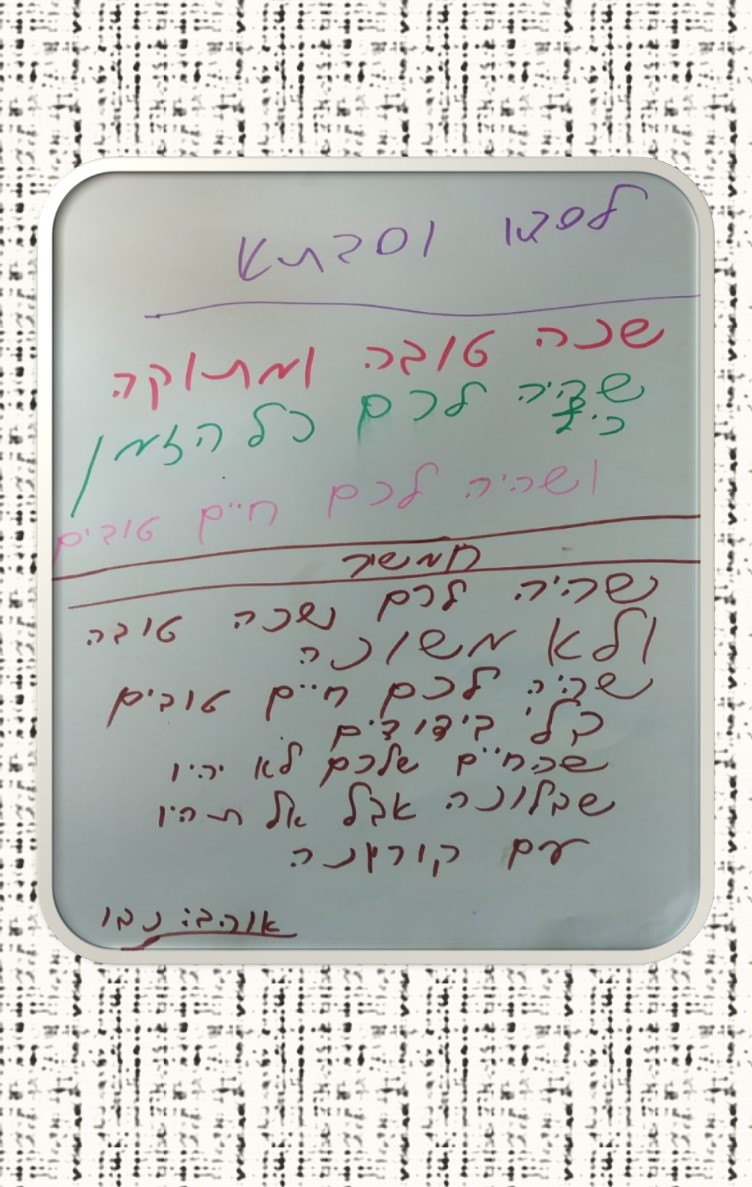 לסבא וסבתא
שנה טובה ומתוקה
שהיה לכם כל הזמן
כיף
ושהיה לכם חיים טובים
חמשיר
שהיה לכם שנה טובה
ולא משונה
שהיה לכם חיים טובים
בלי בידודים
שהחיים שלכם לא יהיו
שבלונה אבל אל תהיו
עם קורונה
אוהב: נבו